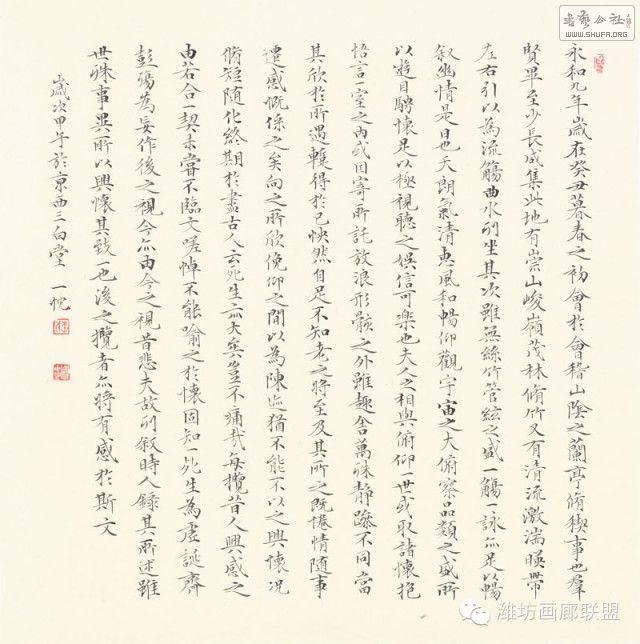 永和九年歲在癸丑暮春之初會於會稽山陰之蘭亭脩稧事也羣
賢畢至少長咸集此地有崇山峻嶺茂林脩竹又有清流激湍暎帶
左右引以為流觴曲水列坐其次雖無絲竹管絃之盛一觴一詠亦足以暢
叙幽情是日也天朗氣清惠風和暢仰觀宇宙之大俯察品類之盛所
以遊目騁懷足以極視聽之娛信可樂也夫人之相與俯仰一世或取諸懷抱
悟言一室之內或因寄所託放浪形骸之外雖趣舍萬殊靜躁不同當
其欣於所遇蹔得於己怏然自足不知老之將至及其所之既惓情隨事
遷感慨係之矣向之所欣俛仰之間以為陳迹猶不能不以之興懷況
脩短隨化終期於盡古人云死生亦大矣豈不痛哉每攬昔人興感之
由若合一契未嘗不臨文嗟悼不能喻之於懷固知一死生為虛誕齊
彭殤為妄作後之視今亦由今之視昔悲夫故列叙時人錄其所述雖
世殊事異所以興懷其致一也後之攬者亦將有感於斯文
歲次甲午於京西三白堂 一忱
书艺公社
WWW.SHUFA.ORG
潍坊画廊联盟